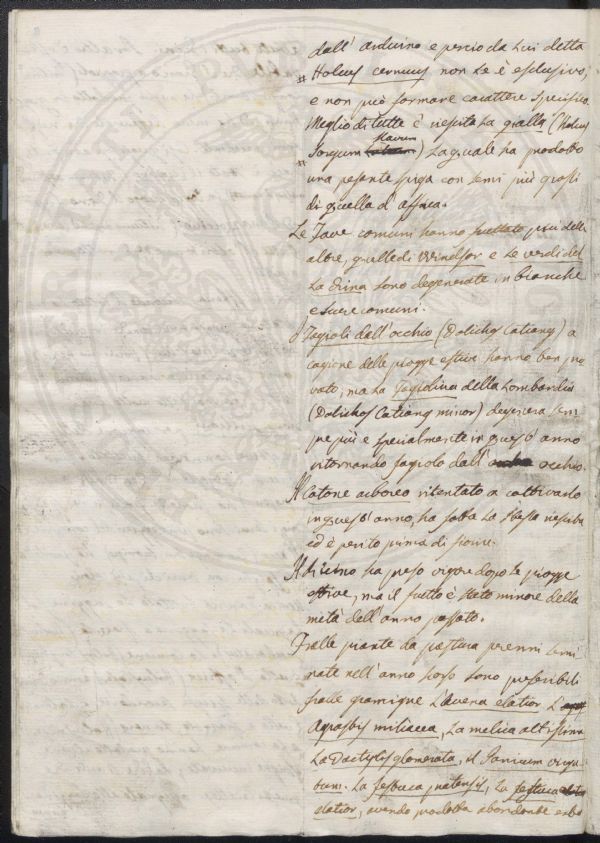 dall' Arduino e perciò da Lui detta
# Holcus cernuus non Le è esclusivo,
e non può formare carattere specifico.
Meglio di tutte è riescita La gialla (Holcus
flavum
# Sorgum) La quale ha prodotto
una pesante spiga con semi più grossi
di quella d'Affrica.
Le Fave comuni hanno fruttato più delle
altre, quelle di Windsor e Le verdi del
La China sono degenerate in bianche
e scure comuni.
I Fagioli dall'occhio (Dolichos Catiang) a
cagione delle piogge estive hanno ben pro
vato, ma La Fagiolina della Lombardia
(Dolichos Catiang minor) degenera sem
pre più e specialmente in quest' anno
ritornando fagiolo dall' occhio.
Il Cotone arboreo ritentato a coltivarlo
in quest' anno, ha fatto La stessa riescita
ed è perito prima di fiorire.
Il ha preso vigore dopo le piogge
estive, ma il frutto è stato minore della
metà dell'anno passato.
Tralle piante da pastura perenni semi
nate nell'anno scorso sono preferibili
fralle gramigne L'Avena elatior L'
Agrostis miliacea, La melica altissima
La Dactylis glomerata, il Panicum virga
tum. La festuca pratensis, La festuca
elatior, avendo prodotta abondante erba